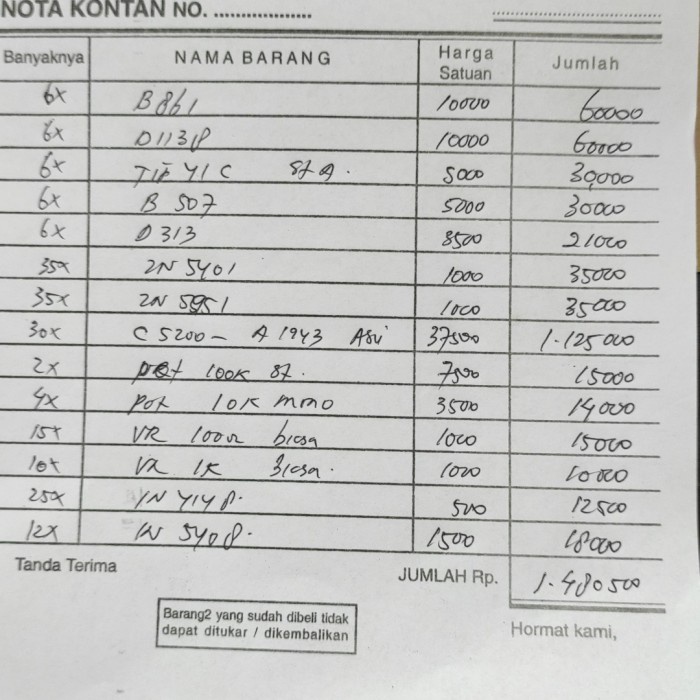 NOTA KONTAN NO. ..................
Banyaknya NAMA BARANG Harga Satuan Jumlah
6x B861 10000 60000
6x D1138 10000 60000
6x TIP 41C ST A. 5000 30000
6x B 507 5000 30000
6x D 313 3500 21000
35x 2N 5401 1000 35000
35x 2N 5951 1000 35000
30x C 5200 - A 1943 Asli 37500 1.125000
2x pot 100K ST. 7500 15000
4x pot 10K mono 3500 14000
15x VR 100Ω biasa 1000 15000
10x VR 1K Biasa. 1000 10000
25x IN 4148. 500 12500
12x IN 5408. 1500 18000
Tanda Terima JUMLAH Rp. 1.480500
Barang2 yang sudah dibeli tidak
dapat ditukar / dikembalikan
Hormat kami,